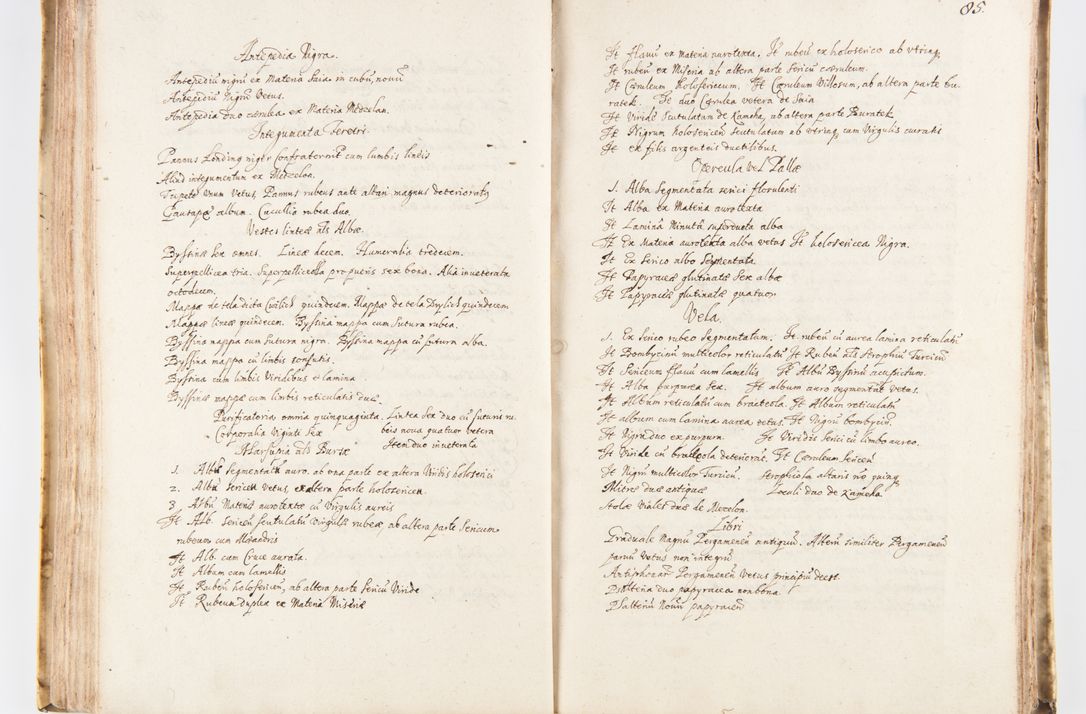 Antepedia Nigra.
Antepediū nigrū ex Materia Saia in cubū, novū
Antepediū Nigrū Vetus.
Antepedia duo cærulea ex Materia Mezelan.
Integumenta Feretri.
Pannus Londinẽ niger Confraternit cum lumbis lineis
Aliud integumentum ex Mezelan.
Tapete unum Vetus, Pannus rubeus ante altari magnus deterioratꝰ
Gausape album. Cucullia rubea duo.
Vestes lineæ als Albæ.
Byssinæ sex omnes. Lineæ decem. Humeralia tredecem.
Superpellicea tria. Superpelliceola pro pueris sex bona. Alia inveterata
octodecem.
Mappæ de tela dicta Cwilich quindecem. Mappæ de tela Drylich quindecem
Mappæ lineæ quindecem. Byssina mappa cum sutura rubea.
Byssina mappa cum sutura nigra. Byssina mappa cū sutura alba.
Byssina mappa cū limbis consutis.
Byssina cum limbis Viridibus e lamina
Byssinæ mappæ cum limbis reticulatis duæ.
Purificatoria omnia quinquaginta. Lintea sex duo cū suturis ru.
Corporalia Viginti sex beis nova quatuor vetera
Item duo inveterata
Marsupia als Bursæ
1. Albū Segmentatū auro. ab una parte ex altera Viridis holoserici
2. Albū sericeū Vetus, ex altera parte holosericea
3. Albū Materiæ aurotextæ cū Virgulis aureis
It Alb. sericeū scutulatū Virgulæ rubeæ ab altera parte Sericum
rubeum cum Meandris
It Alb. cum Cruce aurata.
It Album cum lamellis
It Rubeū holosericeū, ab altera parte sericū Viride
It Rubeum duplex ex Materia Miseriæ
85.
It flavū ex materia aurotexta. It rubeū ex holoserico ab utrinq
It rubeū ex Miseria ab altera parte sericū cæruleum.
It Cæruleum holosericeum. It Cæruleum Villosum, ab altera parte bu-
ratek. It duo Cærulea vetera de Saia
It Viride Scutulatum de Kamcha, ab altera parte Buratek
It Nigrum holosericeū scutulatum ab utrinq cum Virgulis cruralis
It ex filis argenteis ductilibus.
Opercula vel Pallæ
1. Alba Segmentata serici florulenti
It Alba ex Materia aurotexta
It Lamina Minuta superducta alba
It Ex Materia aurotexta alba vetus It holosericea Nigra.
It Ex Serico albo Segmentata
It Papyraceæ glutinatæ Sex albæ
It Papyraceæ glutinatæ quatuor
Vela.
1. Ex serico rubeo Segmentatum. It rubeū cū aurea lamina reticulatū
It Bombycinū multicolor reticulatū It Rubeū als strophiū Turcicū
It Sericeum flavū cum lamellis It Albū Byssinū acupictum.
It Alba purpurea sex. It album auro segmentatū vetus.
It Album reticulatū cum bracteola. It Album reticulatū
It album cum lamina aurea vetus. It Nigrū bombycinū.
It Nigra duo ex purpura. It Viridis serici cū limbo aureo.
It Viride cū bracteola deterioraẽ. It Cæruleum Sericeū
It Nigrū multicolor Turcicū. Strophiola altaris nõ quinq
Mitræ duæ antiquæ Loculi duo de Kamcha.
Stolæ Viales duæ de Mezelon.
Libri
Graduale Magnū Pergameneū antiquū. Alterū similiter Pergameneū
parvū Vetus non integrū
Antiphonar Pergameneū Vetus principiū deest.
Psalteria duo papyracea non bona
Psalteriū Novū papyraceū